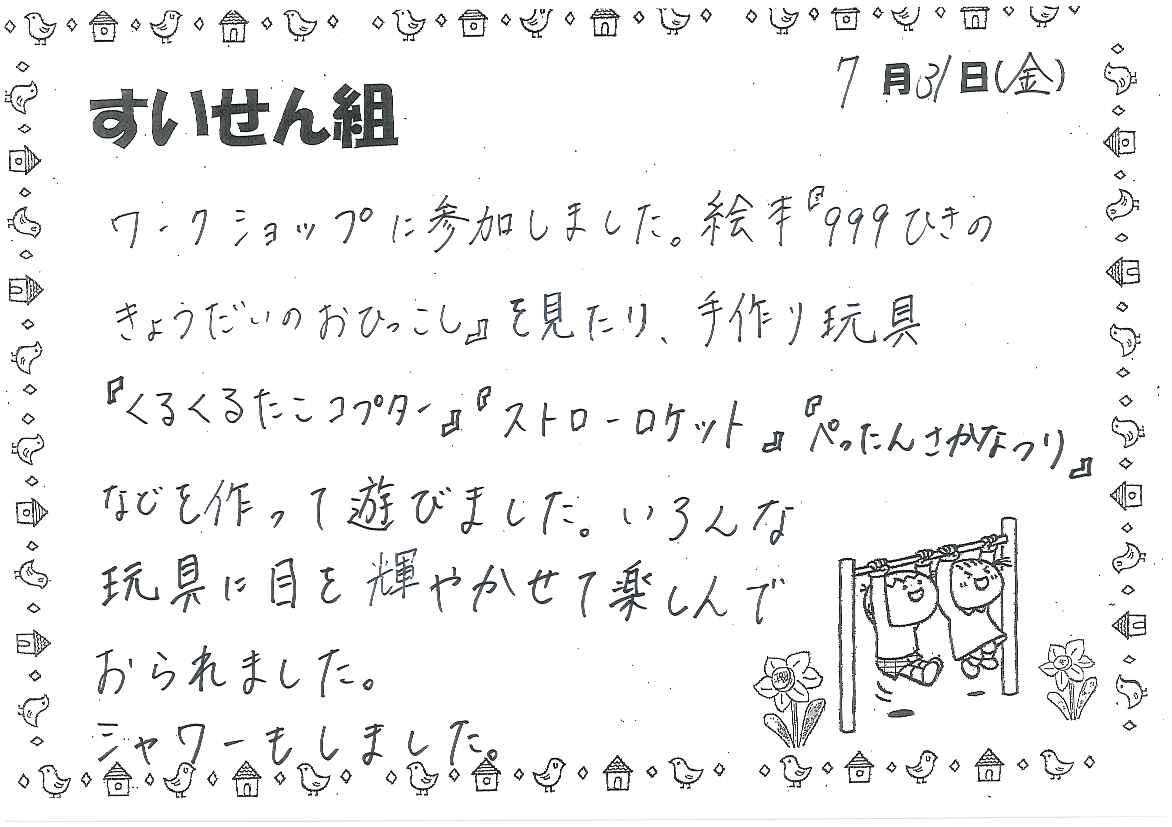 7月31日(金)
すいせん組
ワークショップに参加しました。絵本『999ひきの
きょうだいのおひっこし』を見たり、手作り玩具
『くるくるたこコプター』『ストローロケット』『ぺったんさかなつり』
などを作って遊びました。いろんな
玩具に目を輝やかせて楽しんで
おられました。
シャワーもしました。